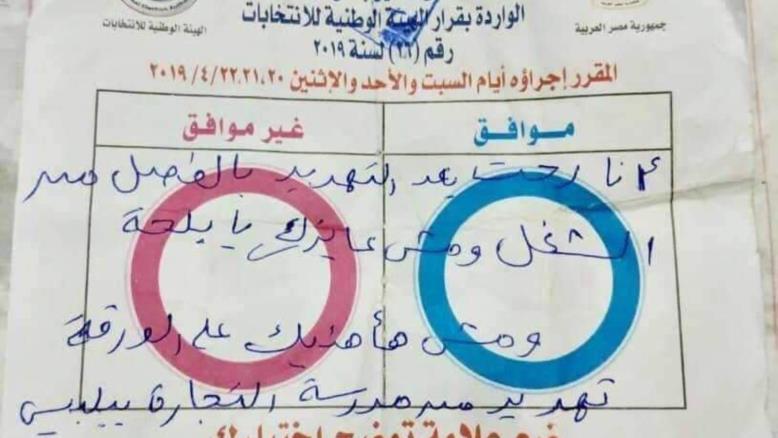 الواردة بقرار الهيئة الوطنية للانتخابات
رقم (٢٦) لسنة ٢٠١٩
جمهورية مصر العربية
الهيئة الوطنية للانتخابات
المقرر إجراؤه أيام السبت والأحد والإثنين ٢٠،٢١،٢٢/٤/٢٠١٩
موافق
غير موافق
أنا رحت بعد التهديد بالفصل من
الشغل ومش عايزك يا بلحة
ومش هأهنيك على الورقة
تهديد من مدرسة التجارة ببلبيس